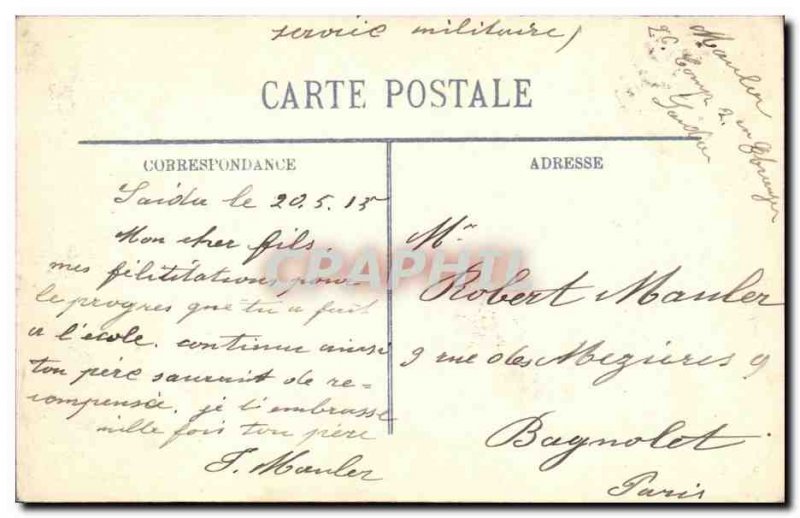 service militaire)
Mauler
2e Comp 2 er Etranger
Saida
CARTE POSTALE
CORRESPONDANCE
ADRESSE
Saida le 20.5.15
Mon cher fils.
mes félititations pour
le progres que tu a fait
a l'école. continue ainsi
ton père saurait de re=
compensée. je t'embrasse
mille fois ton père
J. Mauler
Mr
Robert Mauler
9 rue des Mezieres 9
Bagnolet
Paris
CPAPHIL